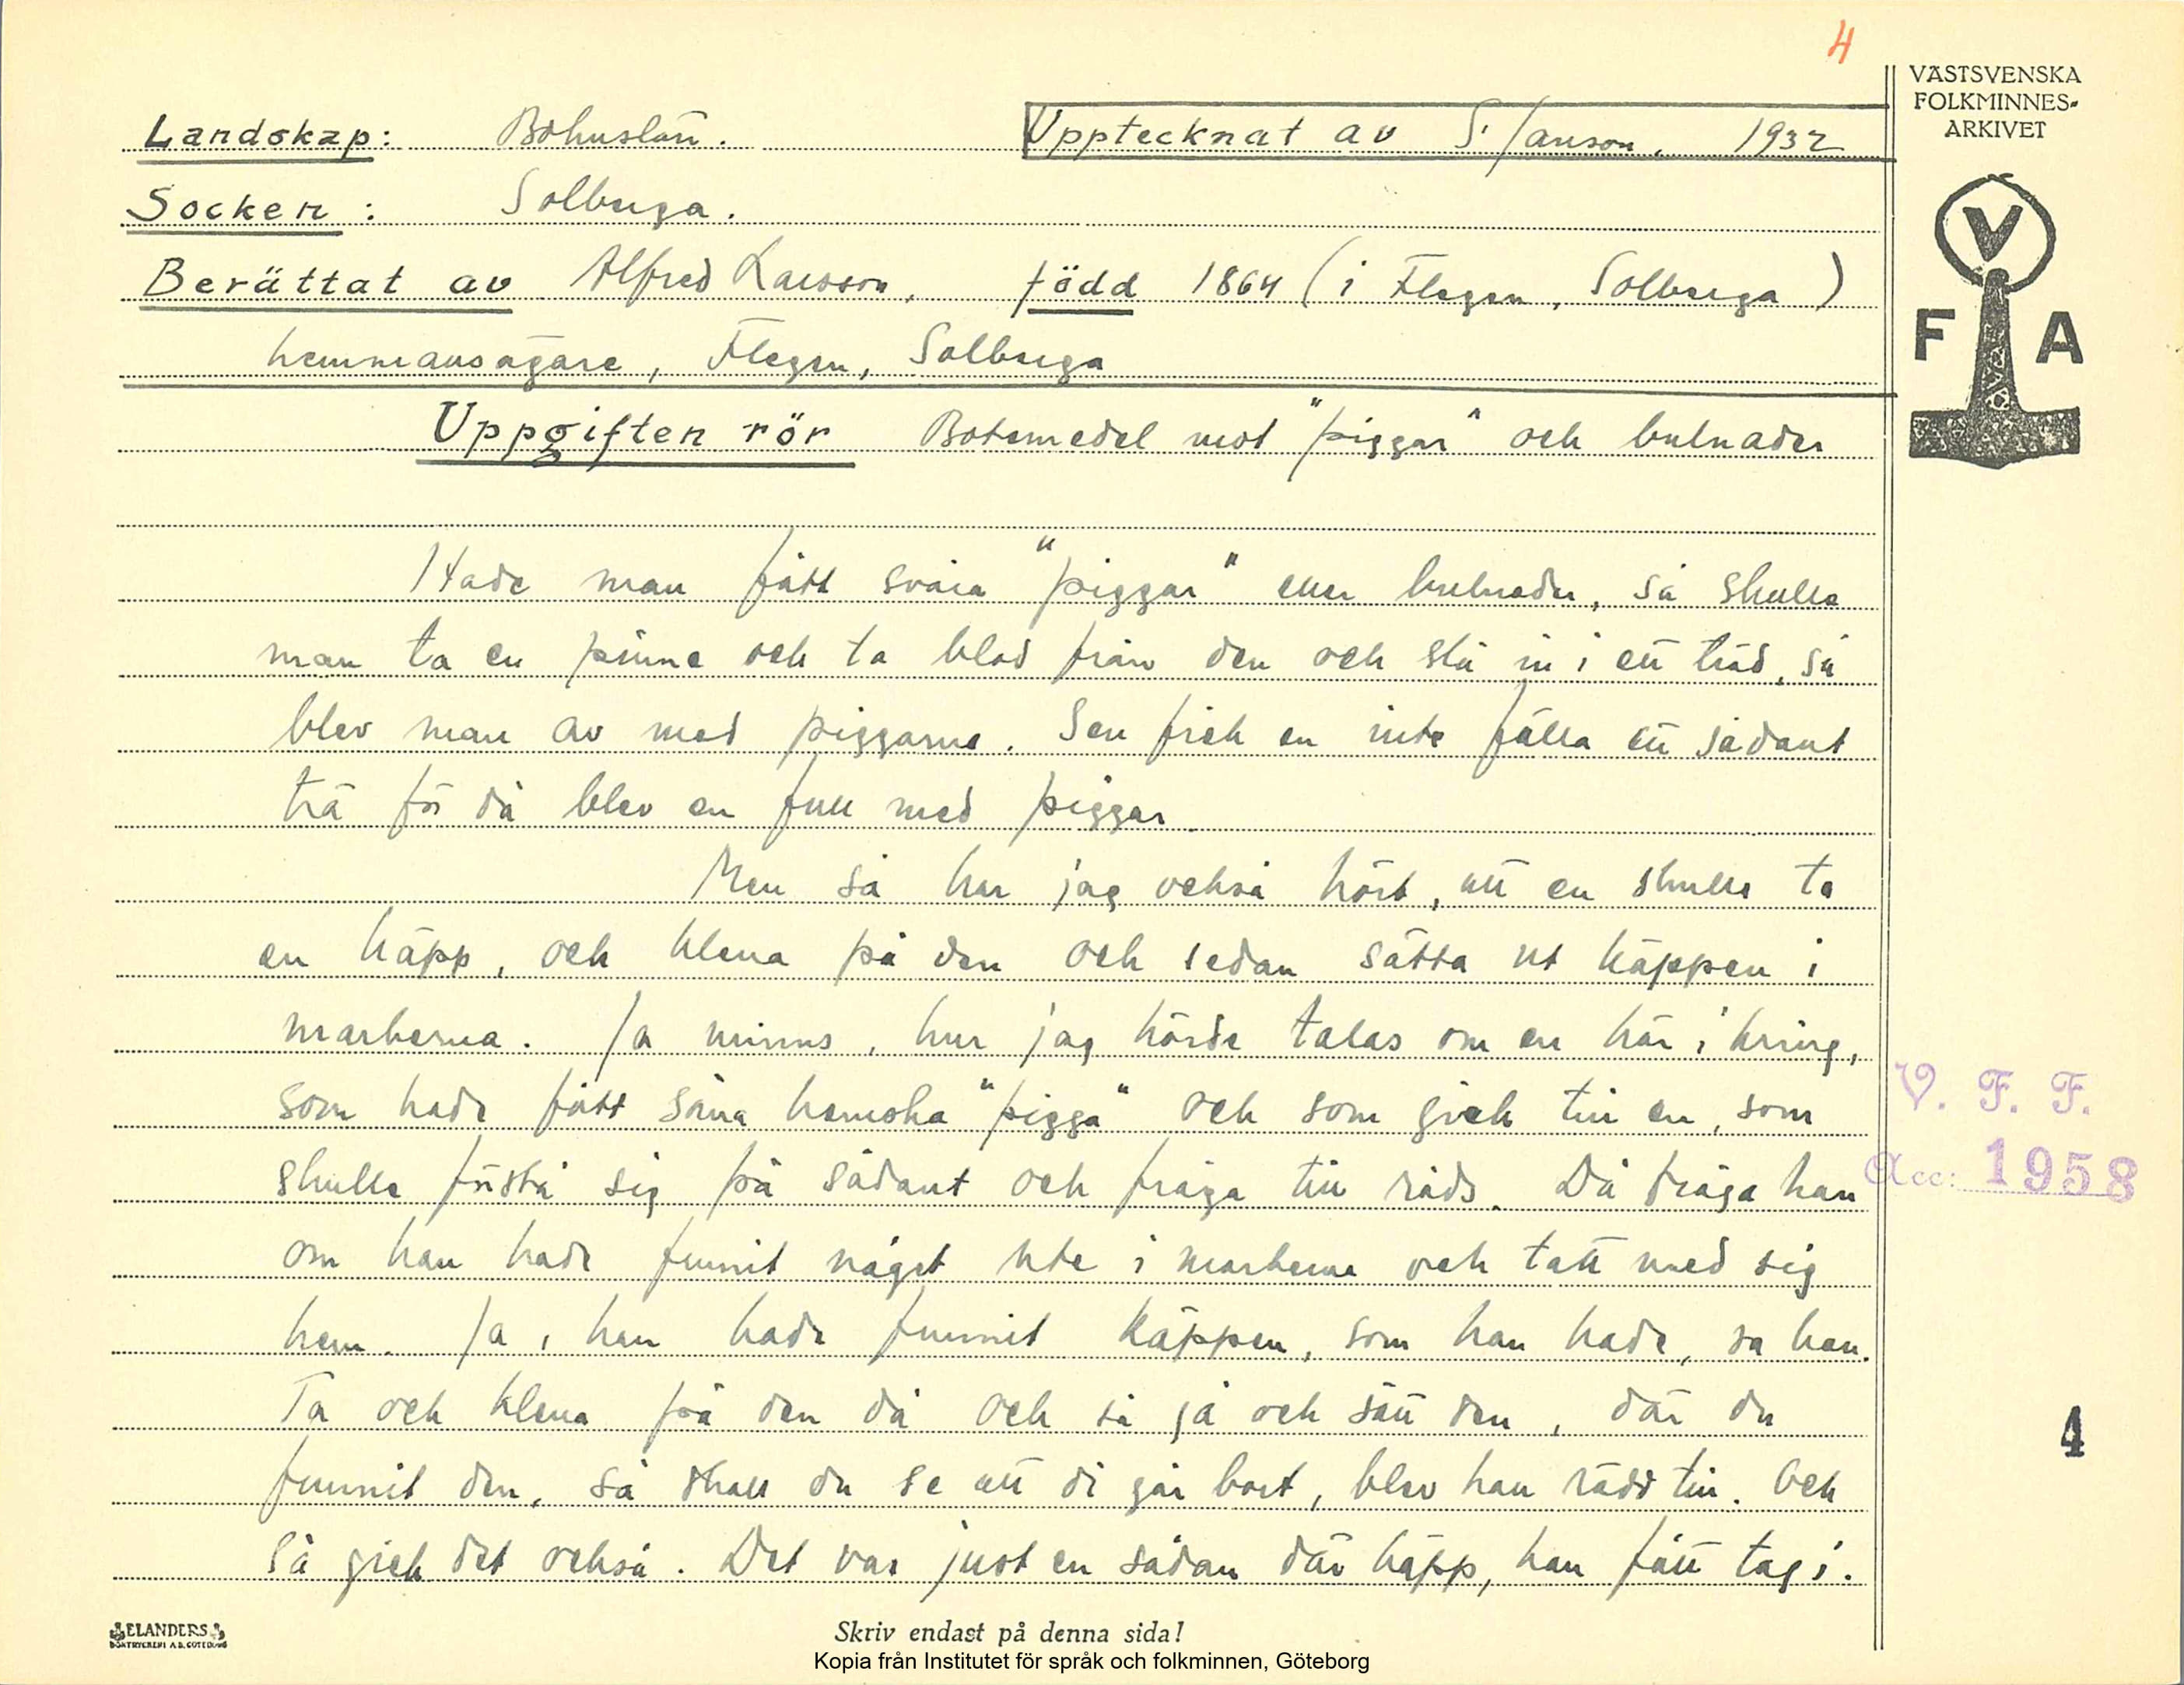 4
VÄSTSVENSKA
FOLKMINNES-
ARKIVET
V
F A
Landskap: Bohuslän. Upptecknat av S. Janson. 1932
Socken: Solberga.
Berättat av Alfred Larsson, född 1864 (i Flegen, Solberga)
hemmansägare, Flegen, Solberga
Uppgiften rör Botemedel mot "piggar" och bulnader
Hade man fått svåra "piggar" eller bulnader, så skulle
man ta en pinne och ta blod från den och slå in i ett träd, så
blev man av med piggarna. Sen fick en inte fälla ett sådant
trä för då blev en full med piggar.
Men så har jag också hört, att en skulle ta
en käpp, och klena på den och sedan sätta ut käppen i
markerna. Ja minns, hur jag hörde talas om en här i kring,
som hade fått såna hemska "pigga" och som gick till en, som
skulle förstå sig på sådant och fråga till råds. Då fråga han
om han hade funnit något ute i markerna och tatt med sig
hem. Ja, han hade funnit käppen, som han hade, sa han.
Ta och klena på den då och så gå och sätt den, där du
funnit den, så skall du se att di går bort, blev han rådd till. Och
så gick det också. Det var just en sådan där käpp, han fått tag i.
V. F. F.
Acc: 1958
4
ELANDERS
BOKTRYCKERI A.B. GÖTEBORG
Skriv endast på denna sida!
Kopia från Institutet för språk och folkminnen, Göteborg